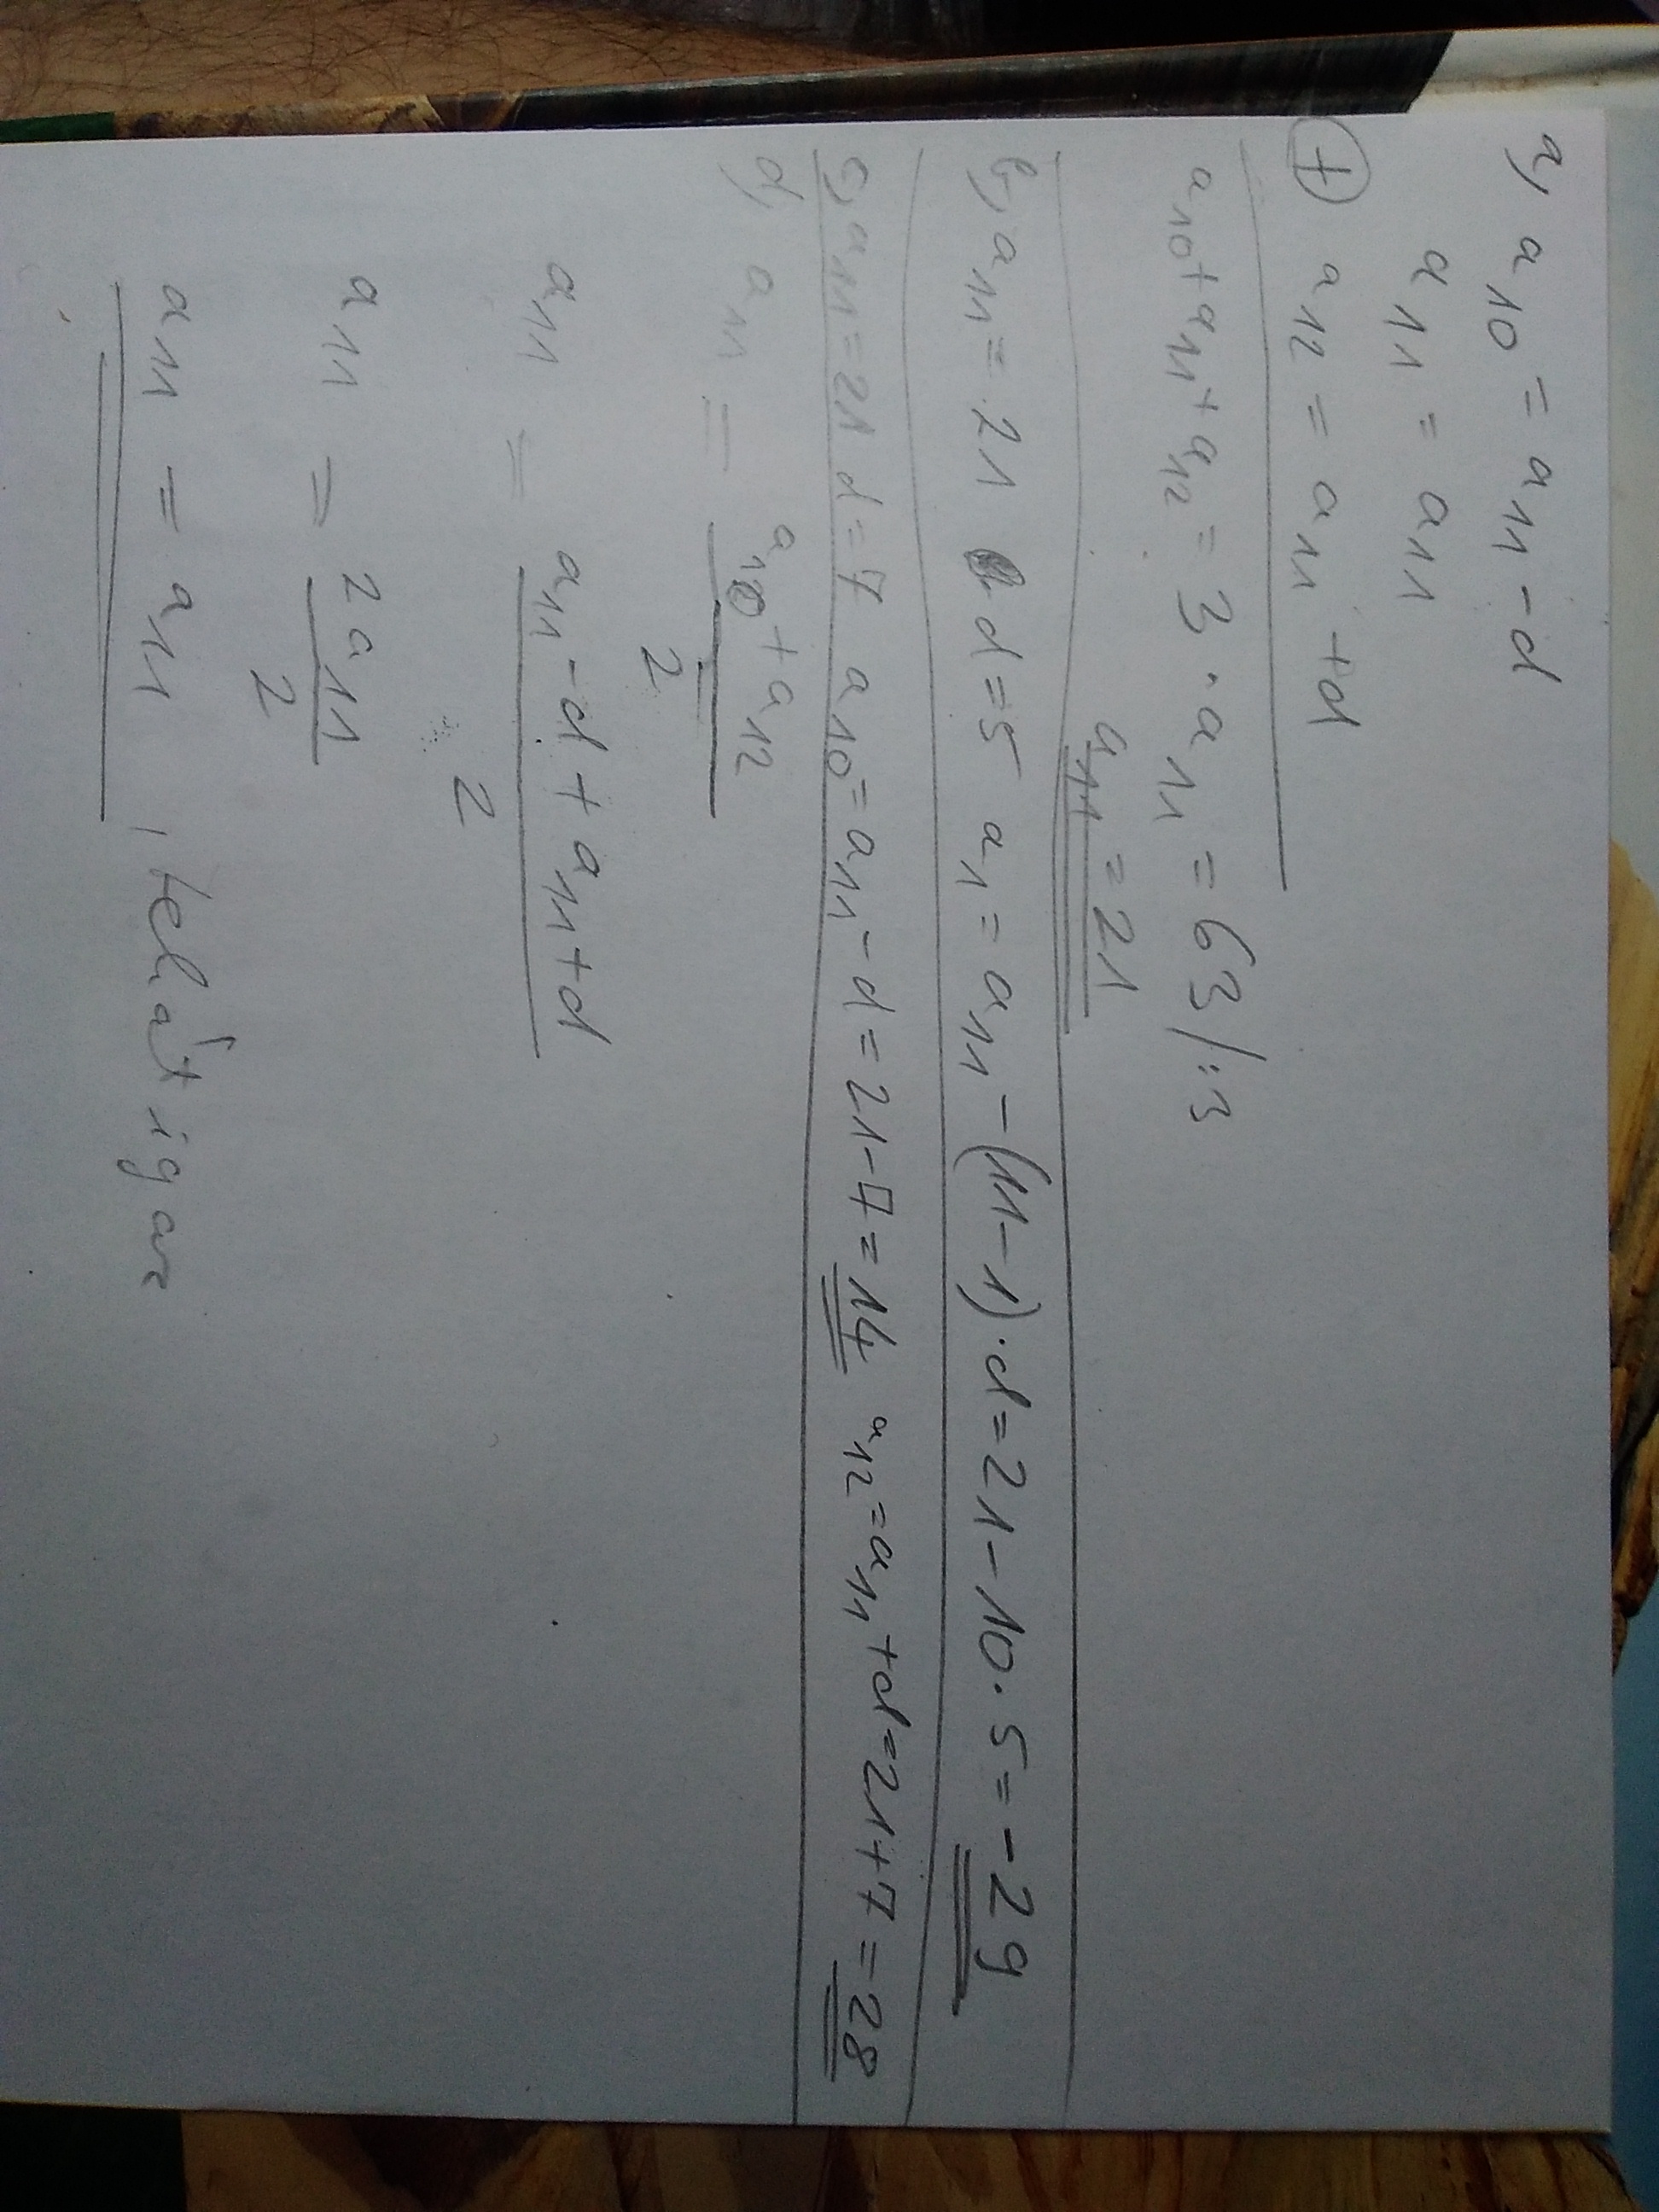 a, a₁₀ = a₁₁ - d
a₁₁ = a₁₁
+ a₁₂ = a₁₁ + d
a₁₀ + a₁₁ + a₁₂ = 3 · a₁₁ = 63 / :3
a₁₁ = 21
b, a₁₁ = 21 d = 5 a₁ = a₁₁ - (11 - 1) · d = 21 - 10 · 5 = -29
c, a₁₁ = 21 d = 7 a₁₀ = a₁₁ - d = 21 - 7 = 14 a₁₂ = a₁₁ + d = 21 + 7 = 28
d, a₁₁ = (a₁₀ + a₁₂) / 2
a₁₁ = (a₁₁ - d + a₁₁ + d) / 2
a₁₁ = 2a₁₁ / 2
a₁₁ = a₁₁ , tehát igaz